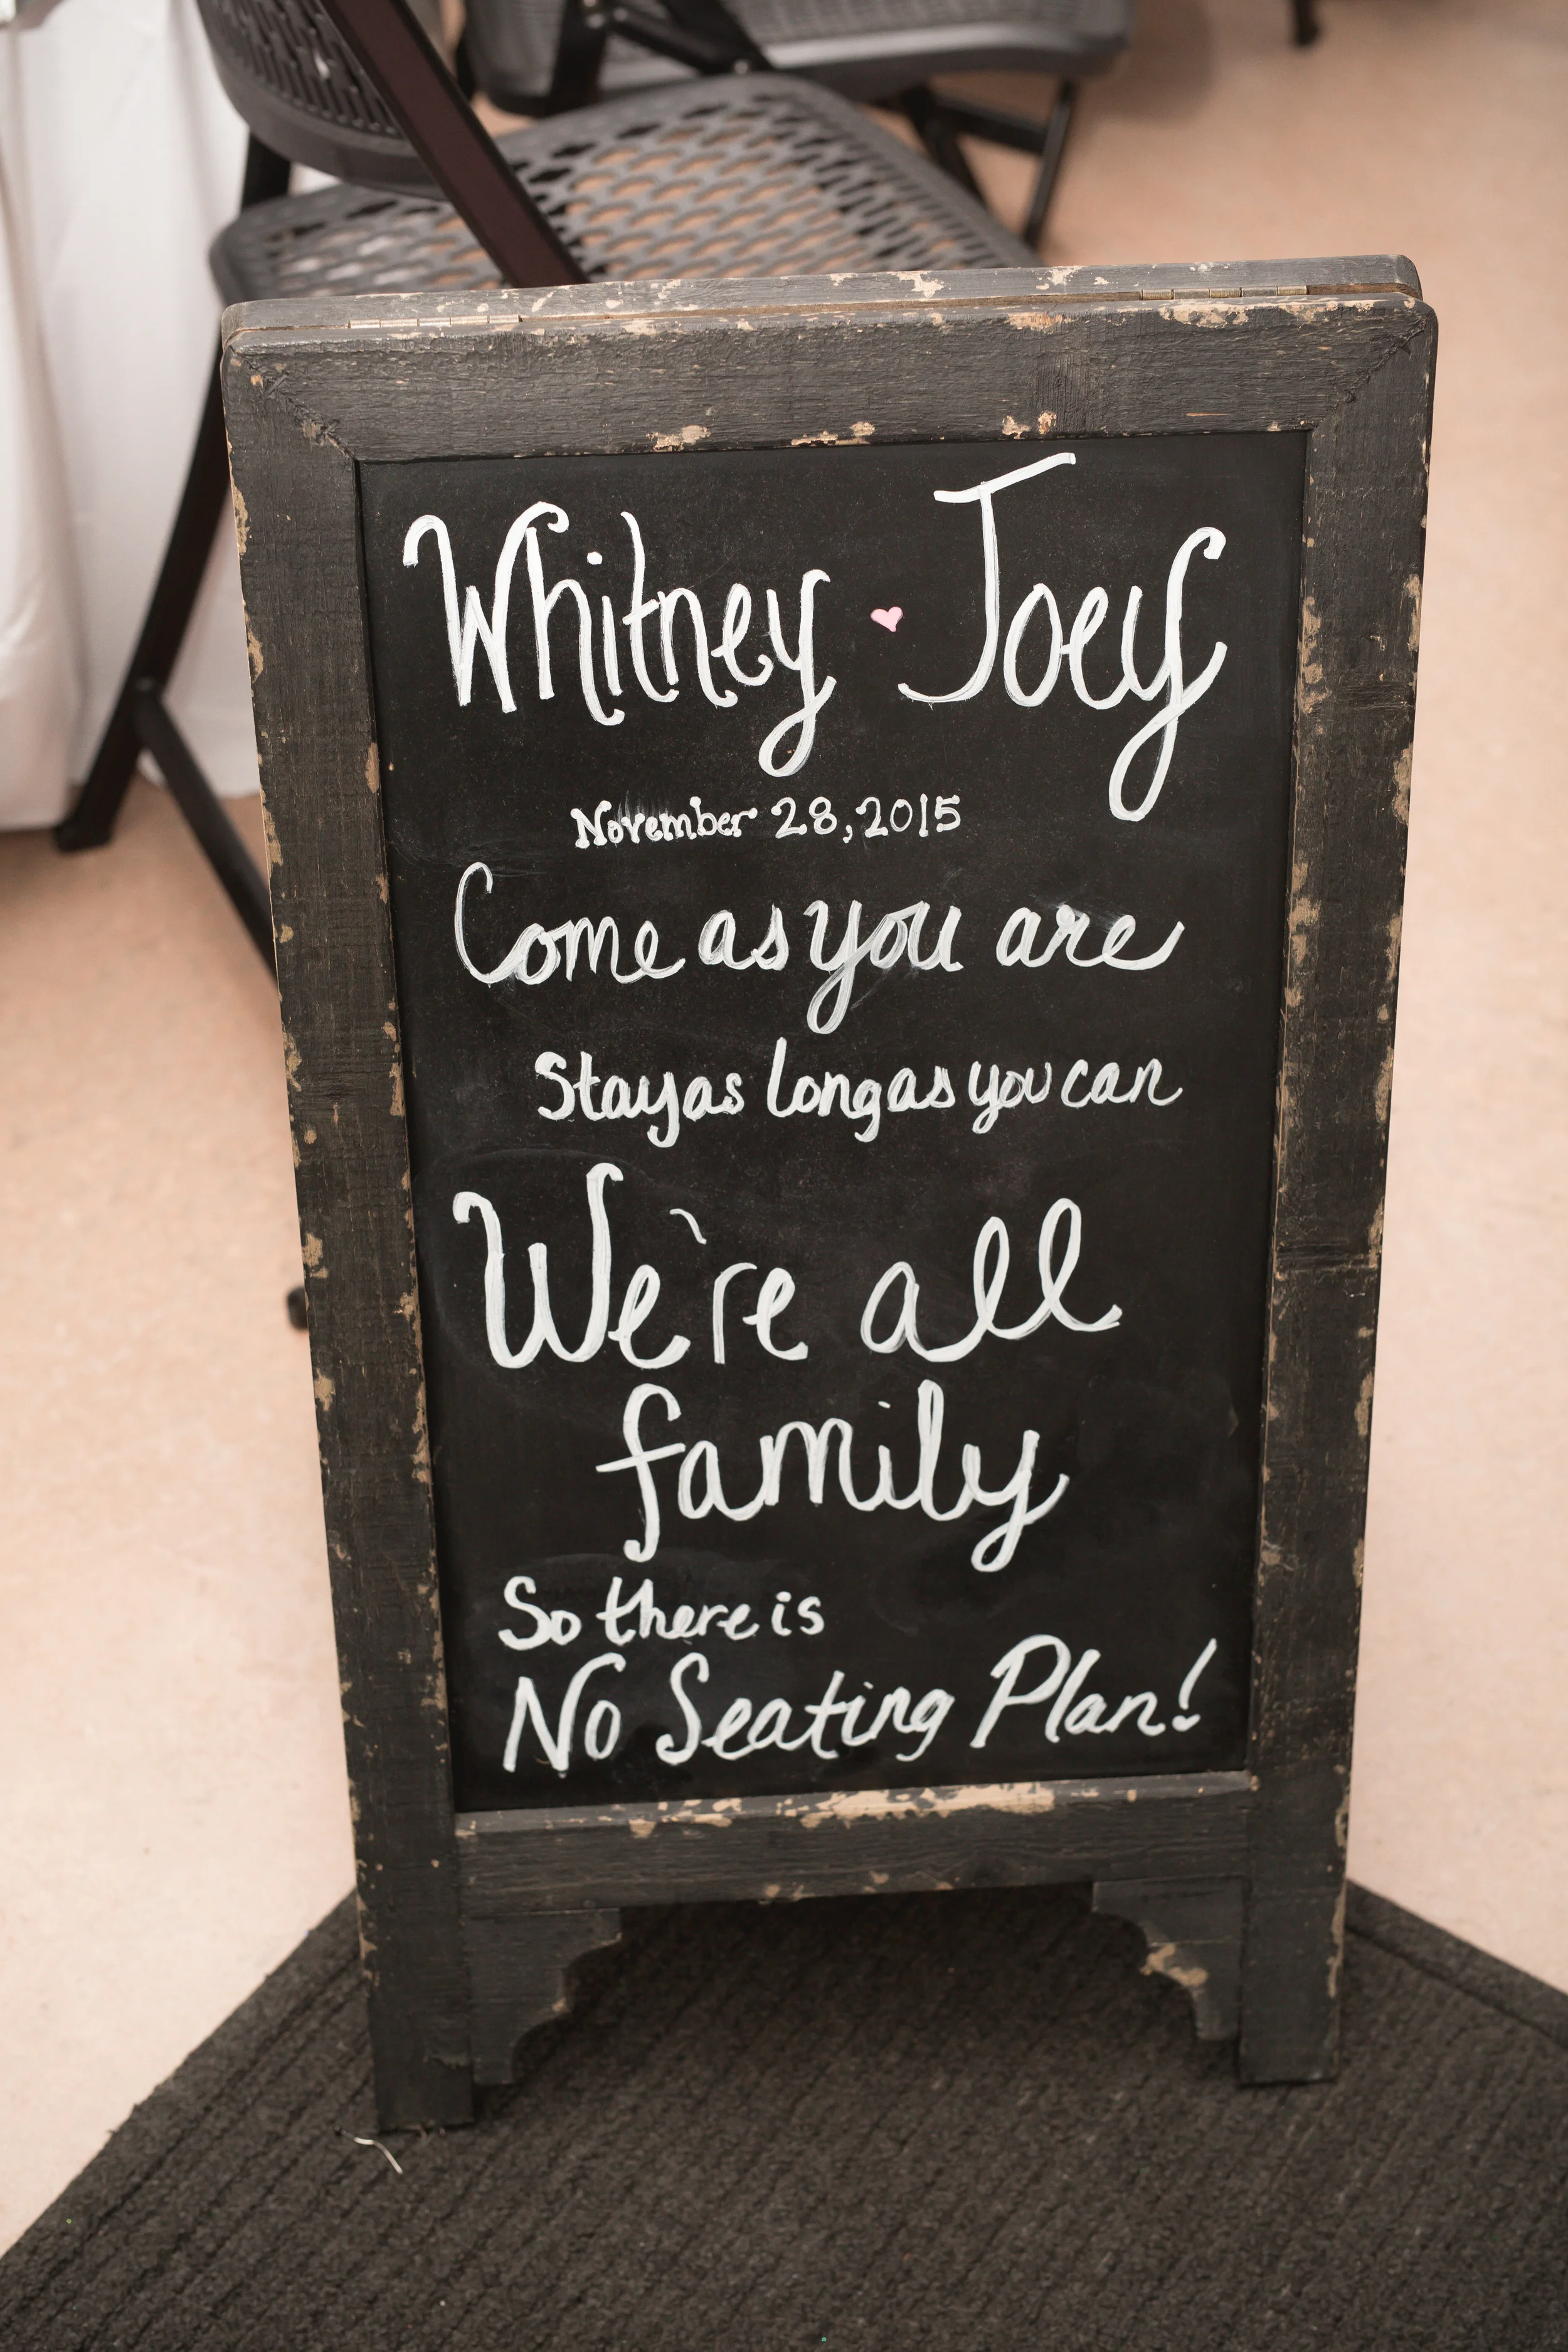 Whitney Joey
November 28, 2015
Come as you are
Stay as long as you can
We're all
family
So there is
No Seating Plan!